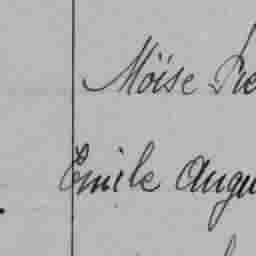 Moïse
Emile Augu